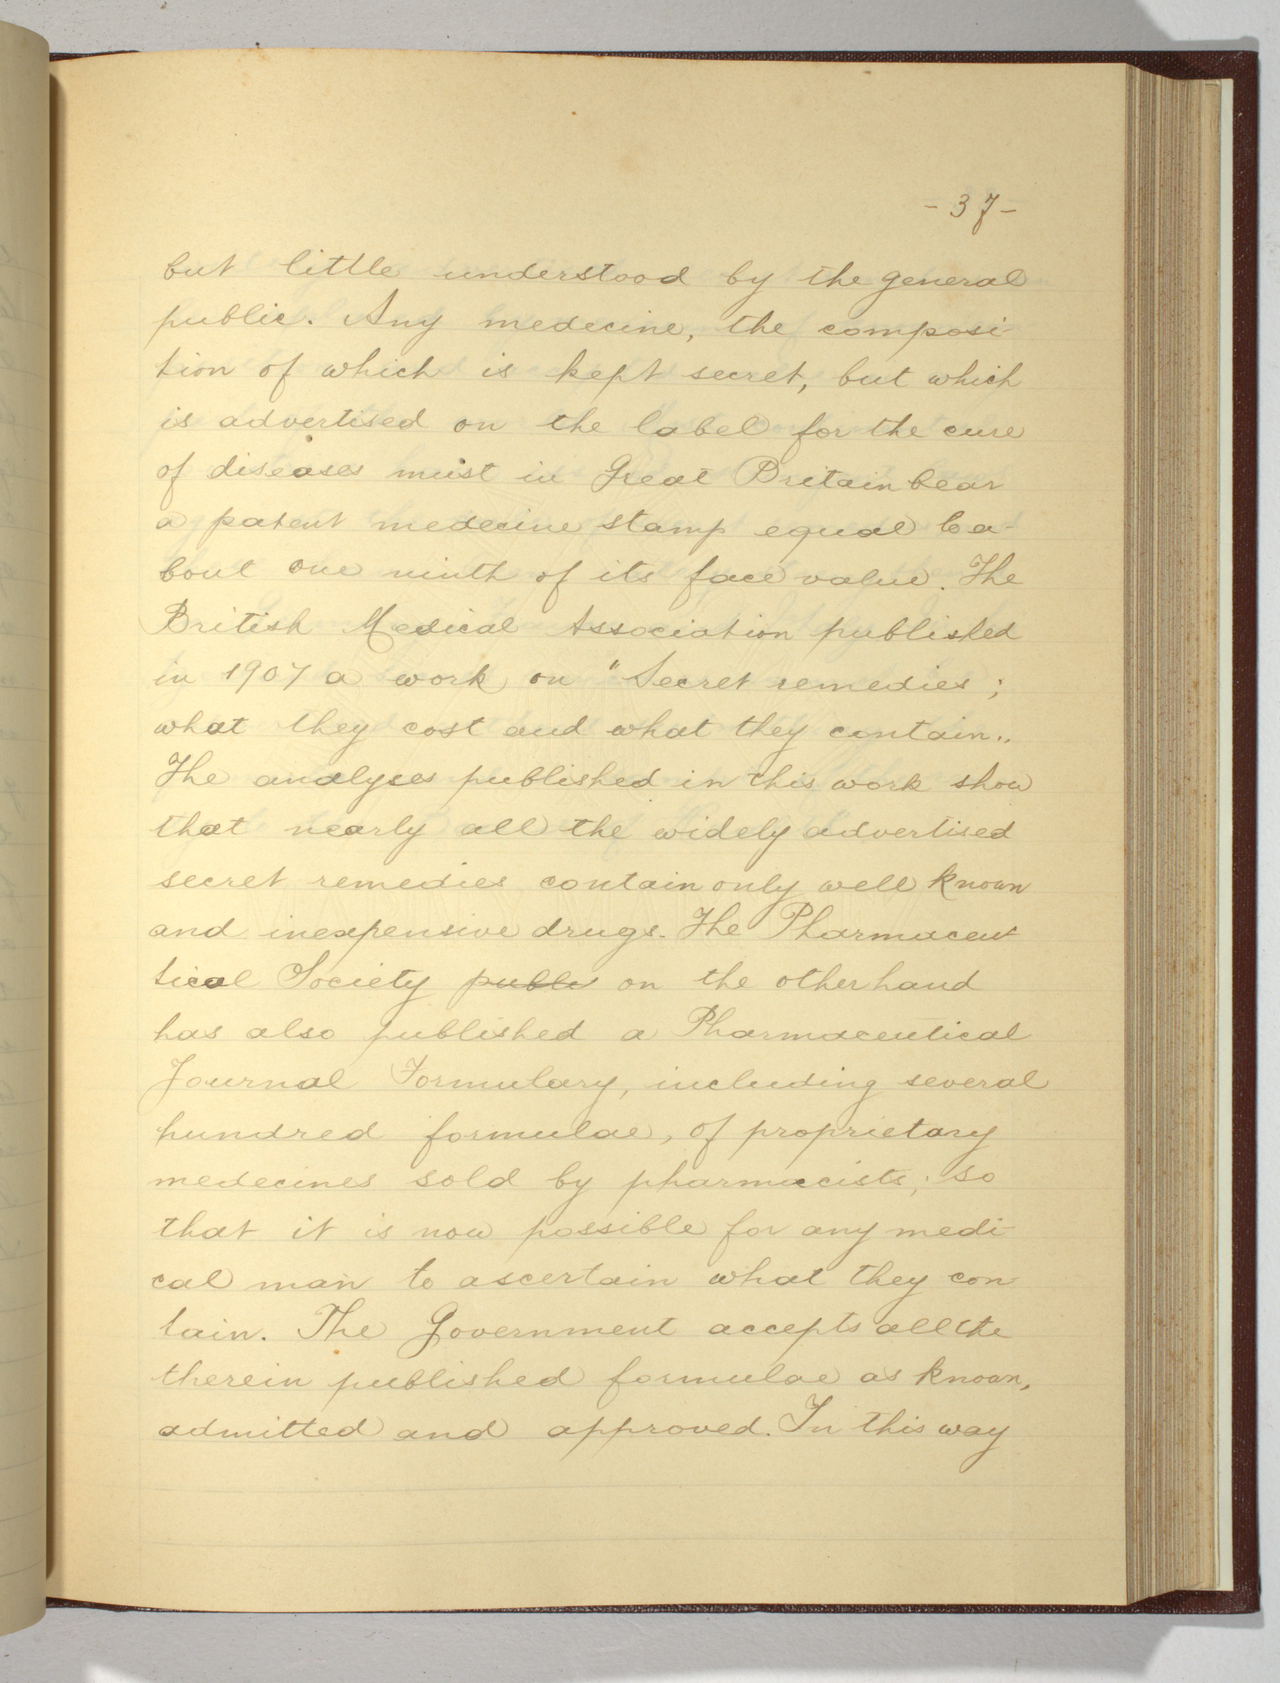 - 37 -
but little understood by the general
public. Any medecine, the composi-
tion of which is kept secret, but which
is advertised on the label for the cure
of diseases must in Great Britain bear
a patent medecine stamp equal to a-
bout one ninth of its face value. The
British Medical Association published
in 1907 a work on "Secret remedies;
what they cost and what they contain„
The analyses published in this work show
that nearly all the widely advertised
secret remedies contain only well known
and inexpensive drugs. The Pharmaceu-
tical Society publis on the other hand
has also published a Pharmaceutical
Journal Formulary, including several
hundred formulae, of proprietary
medecines sold by pharmacists; so
that it is now possible for any medi-
cal man to ascertain what they con
tain. The Government accepts all the
therein published formulae as known,
admitted and approved. In this way